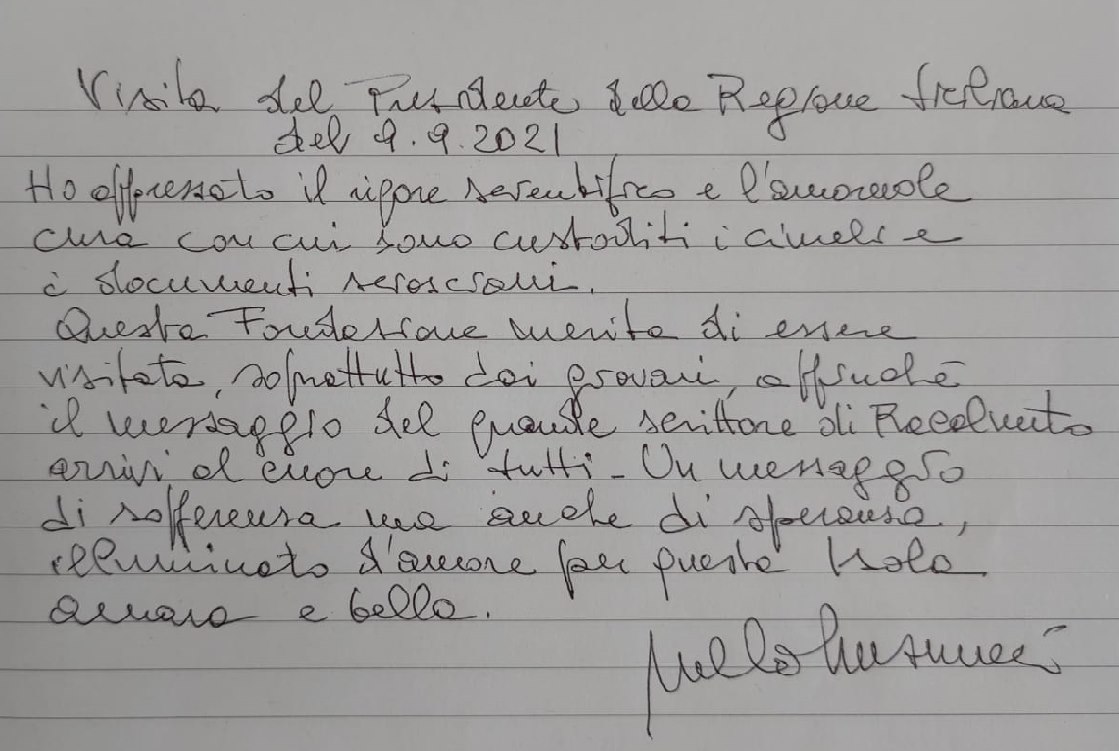 Visita del Presidente della Regione Siciliana
del 9.9.2021
Ho apprezzato il rigore scientifico e l'amorevole
cura con cui sono custoditi i cimeli e
i documenti sciasciani.
Questa Fondazione merita di essere
visitata, soprattutto dai giovani, affinché
il messaggio del grande scrittore di Racalmuto
arrivi al cuore di tutti - Un messaggio
di sofferenza ma anche di speranza,
illuminato d'amore per questa Isola
amara e bella.
Nello Musumeci